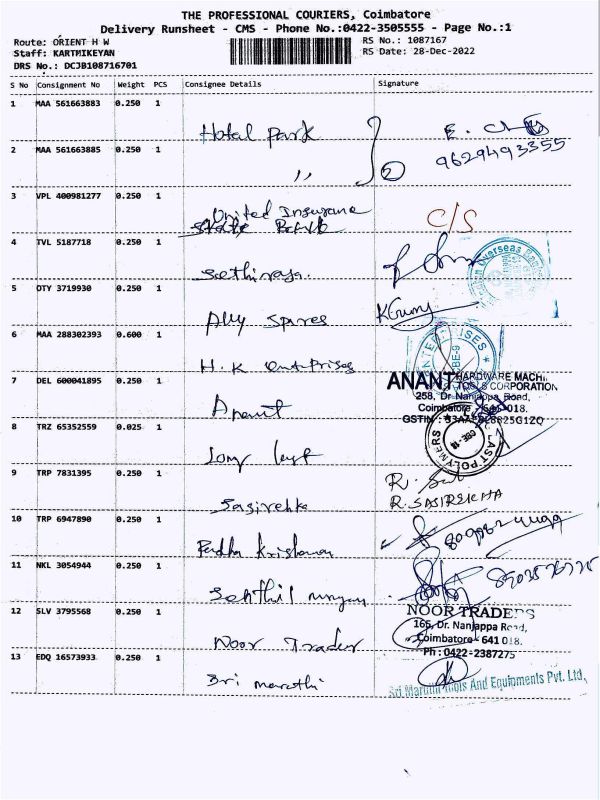 THE PROFESSIONAL COURIERS, Coimbatore
Delivery Runsheet - CMS - Phone No.:0422-3505555 - Page No.:1
Route: ORIENT H W
RS No.: 1087167
Staff: KARTHIKEYAN
RS Date: 28-Dec-2022
DRS No.: DCJB108716701
S No Consignment No Weight PCS Consignee Details Signature
1 MAA 561663883 0.250 1
Hotel Park
2 MAA 561663885 0.250 1
9629493355
,, 2
3 VPL 400981277 0.250 1
United Insurance C/S
4 TVL 5187718 0.250 1
Sathiraja.
5 OTY 3719930 0.250 1
Ally Spares
6 MAA 288302393 0.600 1
H.K Enterprises
7 DEL 600041895 0.250 1
ANANT HARDWARE MACHI
TOOLS CORPORATION
258, Dr Nanjappa Road,
Coimbatore - 641 018.
Anant
8 TRZ 65352559 0.025 1
9 TRP 7831395 0.250 1
R. SASIREKHA
Sasirekha
10 TRP 6947890 0.250 1
Radha Krishnan
11 NKL 3054944 0.250 1
Senthil
NOOR TRADERS
12 SLV 3795568 0.250 1
165, Dr. Nanjappa Road,
Coimbatore - 641 018.
Noor Trader
Ph : 0422-2387275
13 EDQ 16573933 0.250 1
Sri Maruthi
Sri Maruthi Tools And Equipments Pvt. Ltd.,